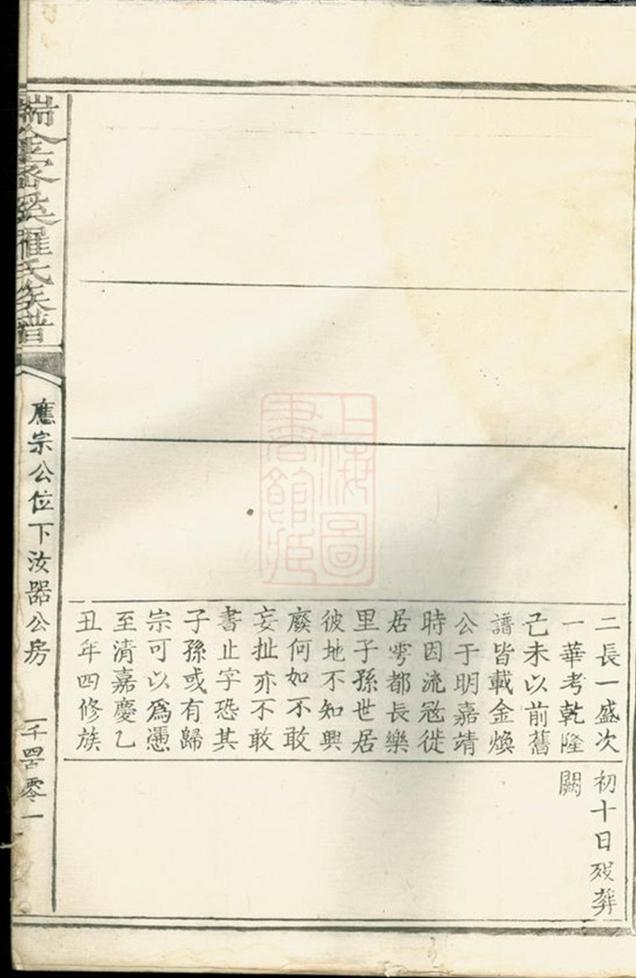 二長一盛次
一華考乾隆
己未以前舊
譜皆載金煥
公于明嘉靖
時因流冦徙
居雩都長樂
里子孫世居
彼地不知興
廢何如不敢
妄扯亦不敢
書止字恐其
子孫或有歸
宗可以為憑
至清嘉慶乙
丑年四修族
初十日歿葬
闕
瑞金密溪羅氏族譜
應宗公位下汝器公房
一千四百零一
上海圖
書館藏